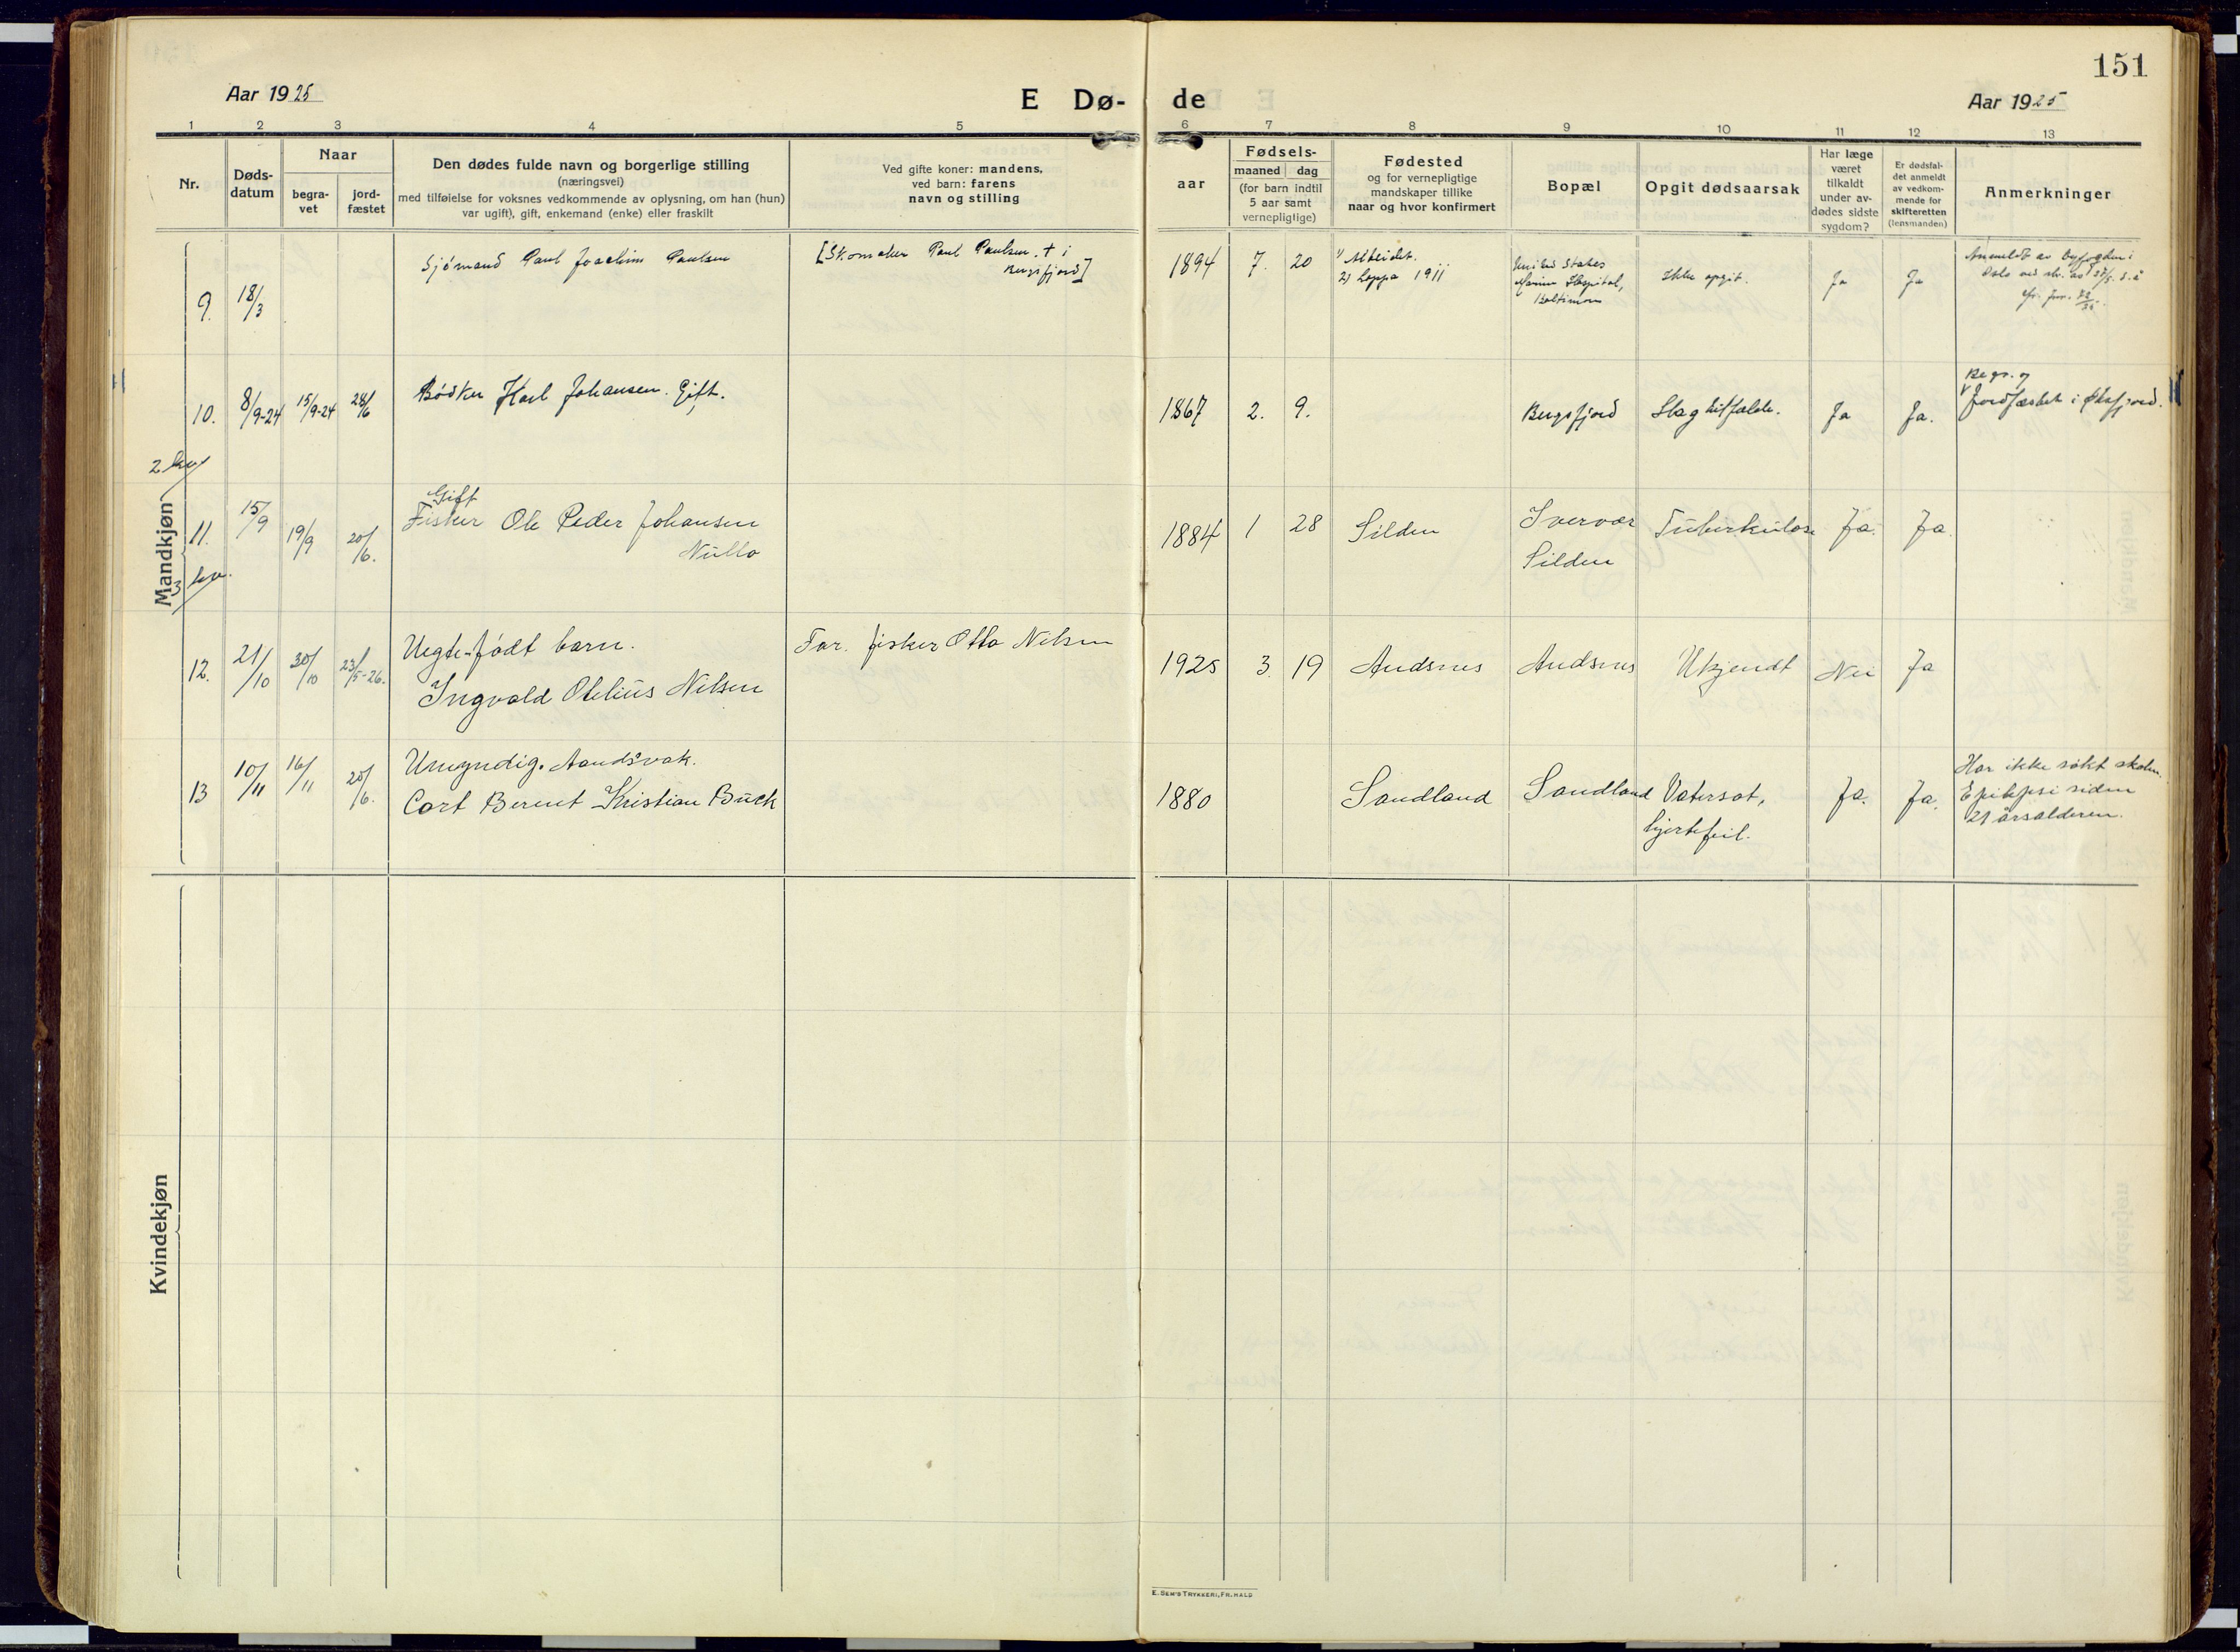 151
Aar 1925
E Dø-
de
Aar 1925
1 2 3 4 5 6 7 8 9 10 11 12 13
Nr.
Døds-
datum
Naar
begra-
vet
jord-
fæstet
Den dødes fulde navn og borgerlige stilling
(næringsvei)
med tilføielse for voksnes vedkommende av oplysning, om han (hun)
var ugift), gift, enkemand (enke) eller fraskilt
Ved gifte koner: mandens,
ved barn: farens
navn og stilling
aar
Fødsels-
maaned dag
(for barn indtil
5 aar samt
vernepligtige)
Fødested
og for vernepligtige
mandskaper tillike
naar og hvor konfirmert
Bopæl
Opgit dødsaarsak
Har læge
været
tilkaldt
under av-
dødes sidste
sygdom?
Er dødsfal-
det anmeldt
av vedkom-
mende for
skifteretten
(lensmanden)
Anmerkninger
Mandkjøn
9. 18/3
Sjömand Paul Joachim Paulsen
[Skomaker Paul Paulsen, † i
Bergsfjord]
1894 7. 20
2) Loppa 1911
United States
Marine Hospital,
Baltimore
Ikke opgit.
Ja Ja
Anmeldt av byfogden i
Oslo
10. 8/9-24 15/9-24 28/6
Bödker Karl Johansen. Gift.
1867 2. 9.
Bergsfjord
Slagtilfælde.
Ja Ja.
Begr. og
Jordfæstet i Øksfjord.
2 kv
11. 15/9 19/9 20/6.
Gift
Fisker Ole Peder Johansen
Nullo
1884 1 28 Silden
Ivervær
Silden
Tuberkulose Ja. Ja.
3 kv.
12. 21/10 30/10 23/5-26.
Uegte-født barn.
Ingvald Otelius Nilsen
Far. fisker Otto Nilsen
1925 3. 19 Andsnes Andsnes Ukjendt Nei Ja
13 10/11 16/11 20/6.
Umyndig. Aandsvak.
Cort Berent Kristian Buck
1880 Sandland Sandland Vatersot,
hjertefeil.
Ja. Ja.
Har ikke søkt skolen.
Epilepsi siden
21 årsalderen.
Kvindekjøn
E. SEM'S TRYKKERI, FR. HALD